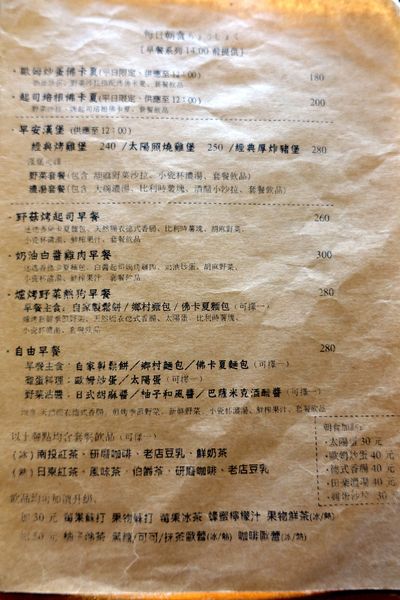 每日朝食
[早餐系列 14:00 前提供]
·歐姆炒蛋佛卡夏(平日限定、供應至12:00) 180
·起司培根佛卡夏(平日限定、供應至12:00) 200
·早安漢堡 (供應至 12:00)
經典烤雞堡 240 /太陽照燒雞堡 250 /經典厚炸豬堡 280
野菜套餐(包含 胡麻野菜沙拉、小瓷杯濃湯、套餐飲品)
濃湯套餐(包含 大碗濃湯、比利時薯塊、清爽小沙拉、套餐飲品)
·野菇烤起司早餐 260
迷迭香佛卡夏麵包、天然腸衣德式香腸、比利時薯塊、胡麻野菜、
小瓷杯濃湯、鮮榨果汁、套餐飲品
·奶油白醬雞肉早餐 300
小瓷杯濃湯、鮮榨果汁、套餐飲品
·爐烤野菜熱狗早餐 280
早餐主食:自家製鬆餅/鄉村麵包/佛卡夏麵包(可擇一)
小瓷杯濃湯、套餐飲品
·自由早餐 280
早餐主食:自家製鬆餅/鄉村麵包/佛卡夏麵包(可擇一)
雞蛋料理:歐姆炒蛋/太陽蛋(可擇一)
野菜沾醬:日式胡麻醬/柚子和風醬/巴薩米克酒醋醬(可擇一)
以上餐點均含套餐飲品(可擇一)
(冰)南投紅茶、研磨咖啡、老店豆乳、鮮奶茶
(熱)日東紅茶、風味茶、伯爵茶、研磨咖啡、老店豆乳
朝食加點:
·太陽蛋 30 元
·歐姆炒蛋 40 元
·德式香腸 40 元
·田菜濃湯 40 元
飲品均可加價升級。
加 30 元 莓果蘇打 果物蘇打 莓果冰茶 蜂蜜檸檬汁 果物鮮茶(冰/熱)
加 50 元 柚子綠茶 黑糖/可可/抹茶歐蕾(冰/熱) 咖啡歐蕾(冰/熱)